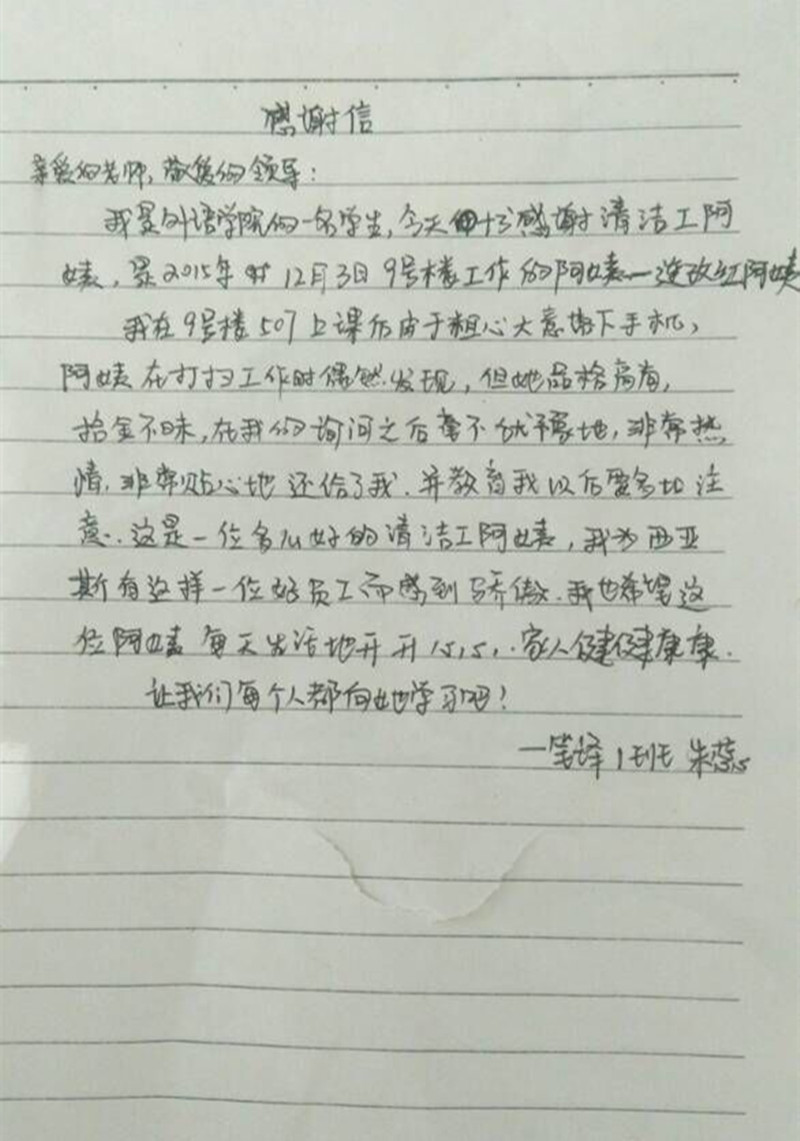 感谢信
亲爱的老师,敬爱的领导:
我是外语学院的一名学生,今天十分感谢清洁工阿
姨,是2015年12月3日9号楼工作的阿姨一连改红阿姨
我在9号楼507上课后由于粗心大意落下手机,
阿姨在打扫工作时偶然发现,但她品格高尚,
拾金不昧,在我的询问之后毫不犹豫地,非常热
情,非常贴心地还给了我.并教育我以后要多加注
意.这是一位多么好的清洁工阿姨,我为西亚
斯有这样一位好员工而感到骄傲.我也希望这
位阿姨每天生活地开开心心,家人健健康康.
让我们每个人都向她学习吧!
一笔译1班 朱蕊